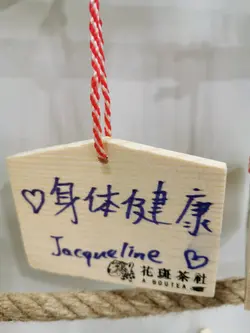 ♡身体健康
Jacqueline ♡
花斑茶社
A NOUTEA